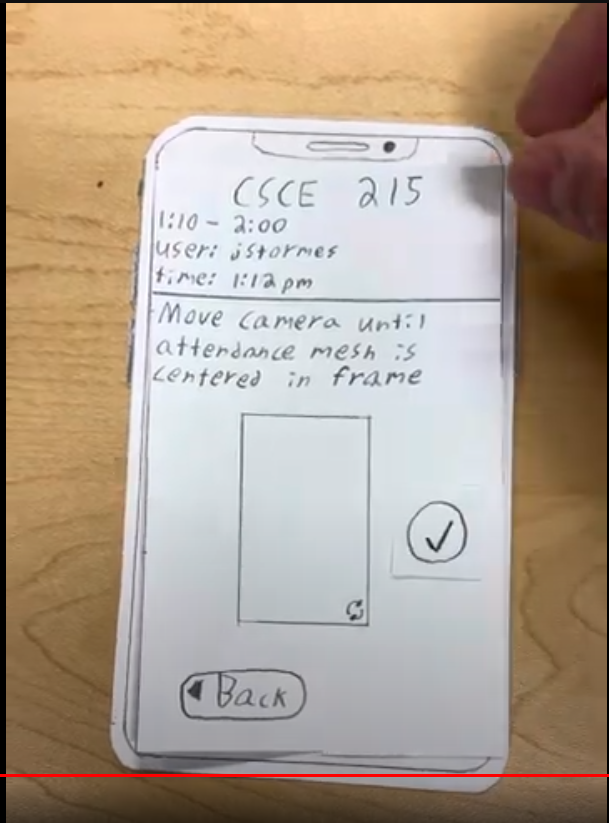 CSCE 215
1:10 - 2:00
user: jstormes
time: 1:12 pm
Move camera until
attendance mesh is
centered in frame
Back